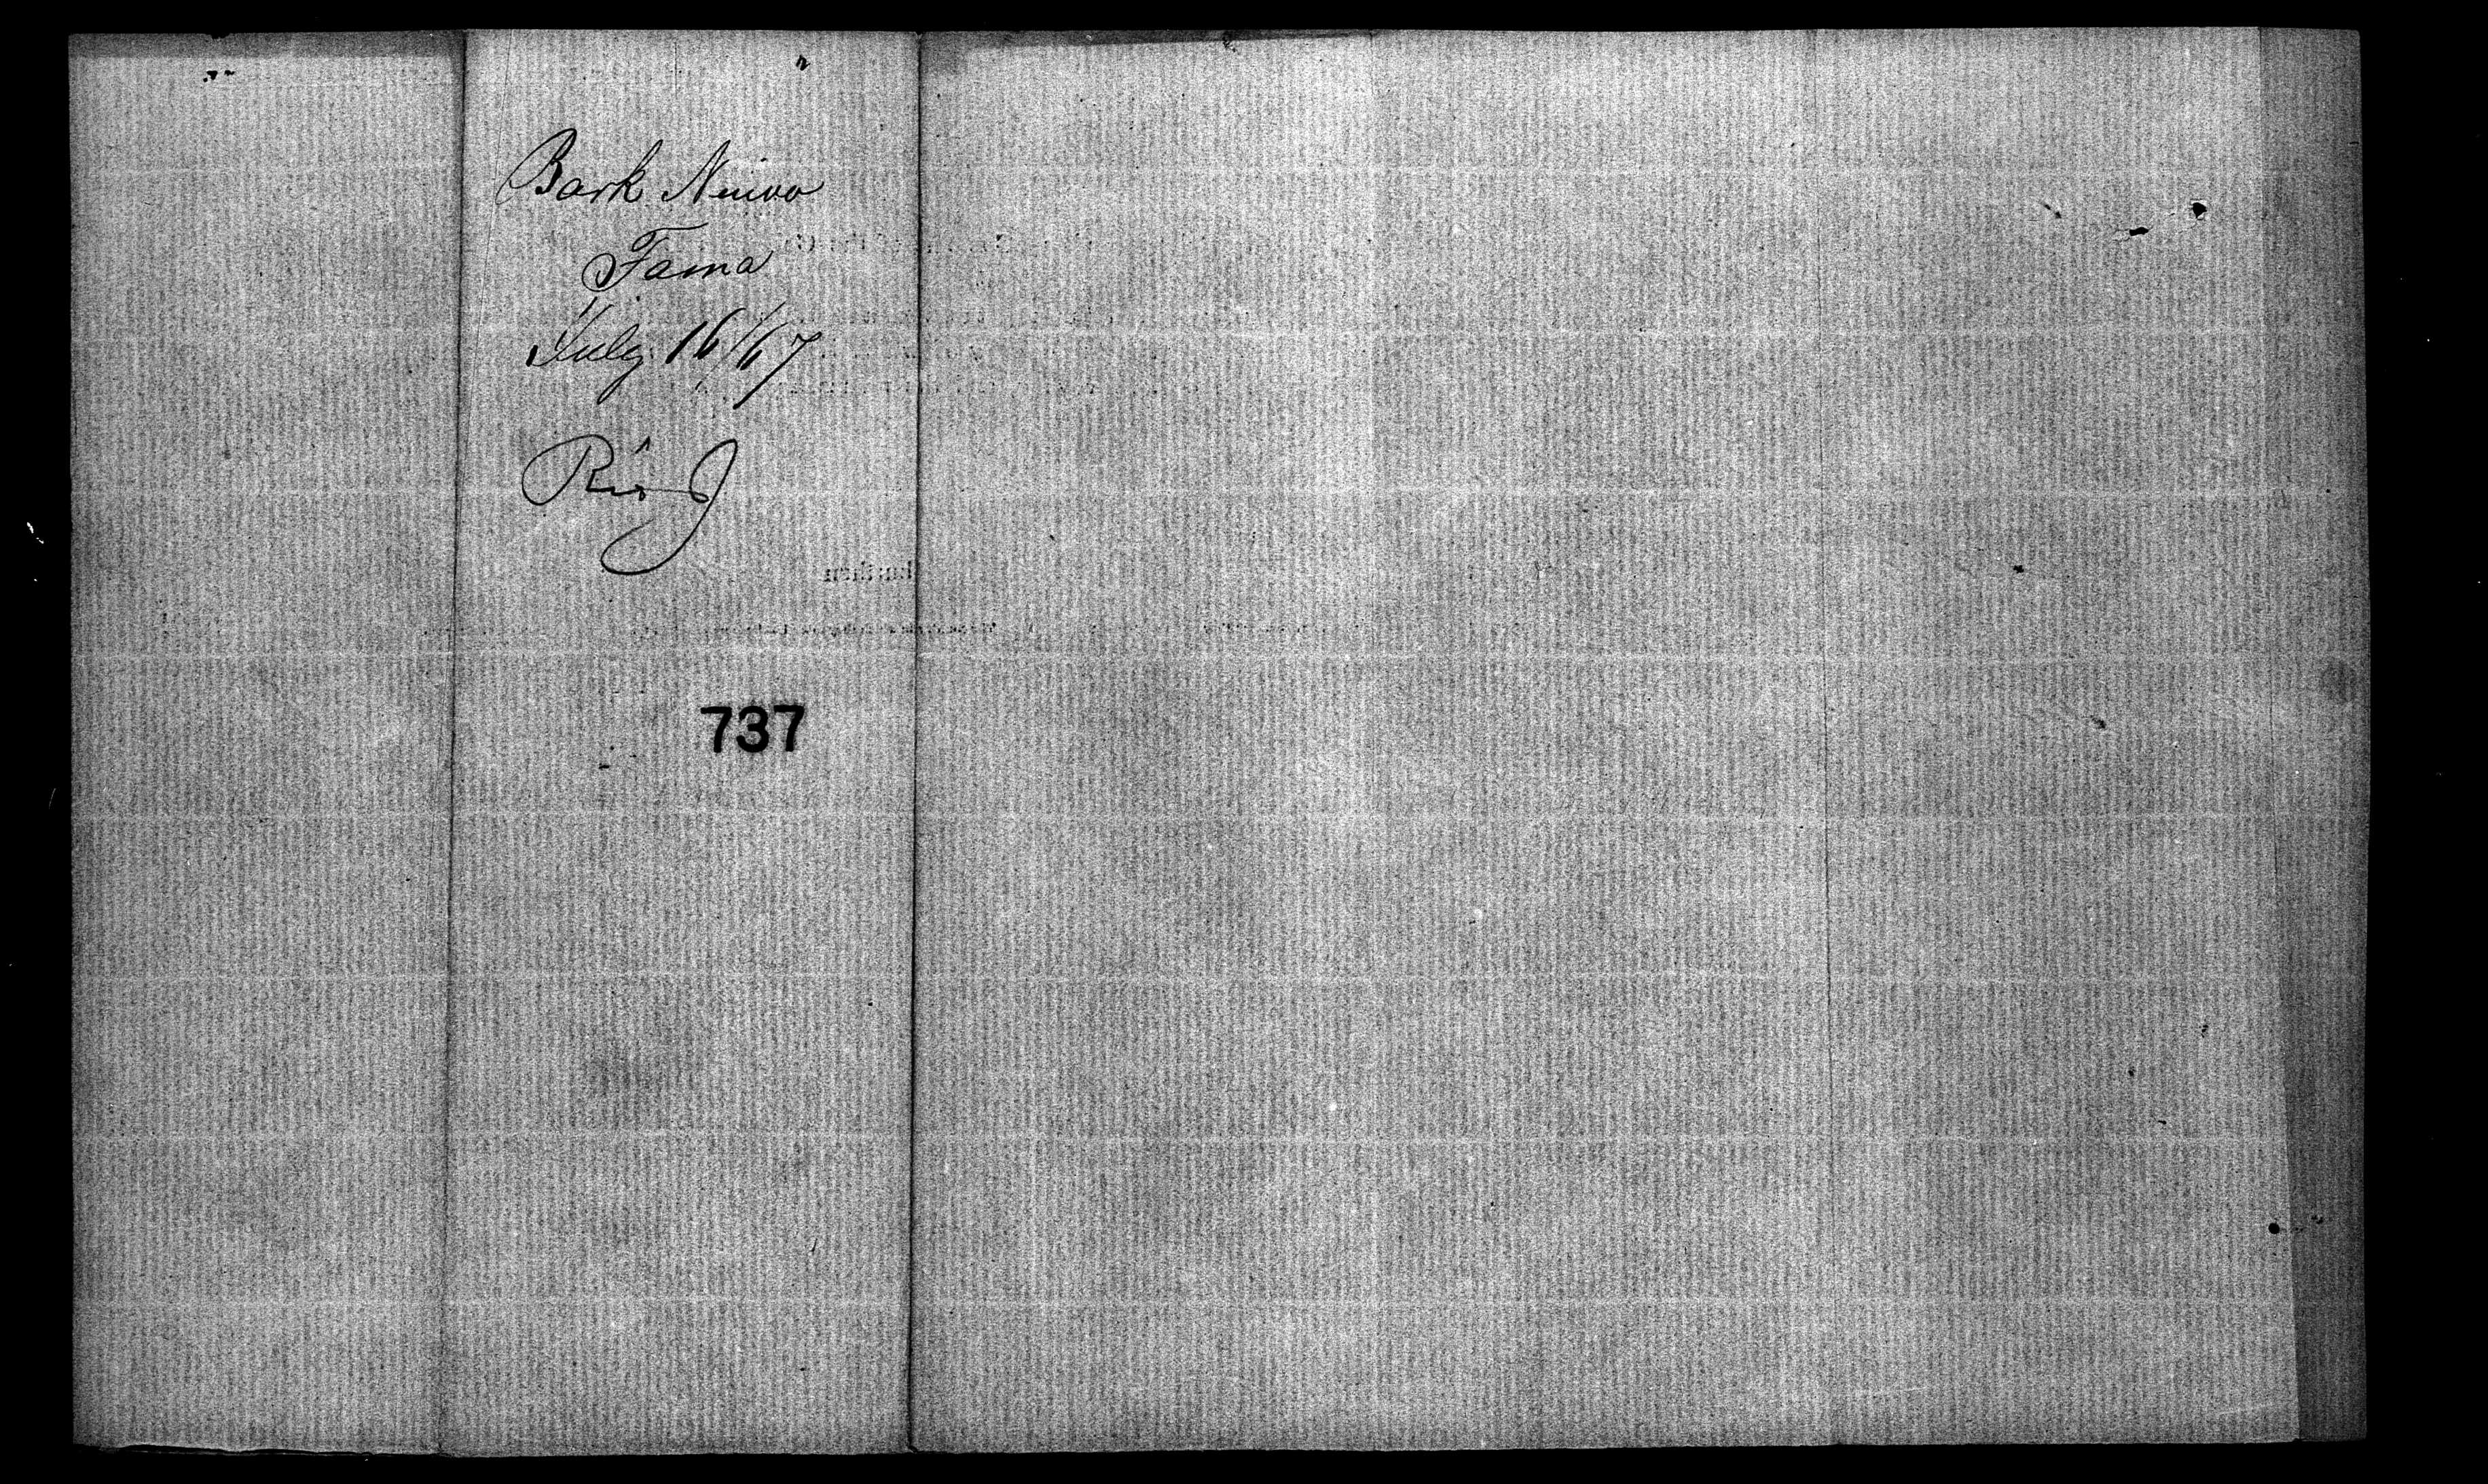 Bark Neuvo
Fama
July 16/67
Rio J
737